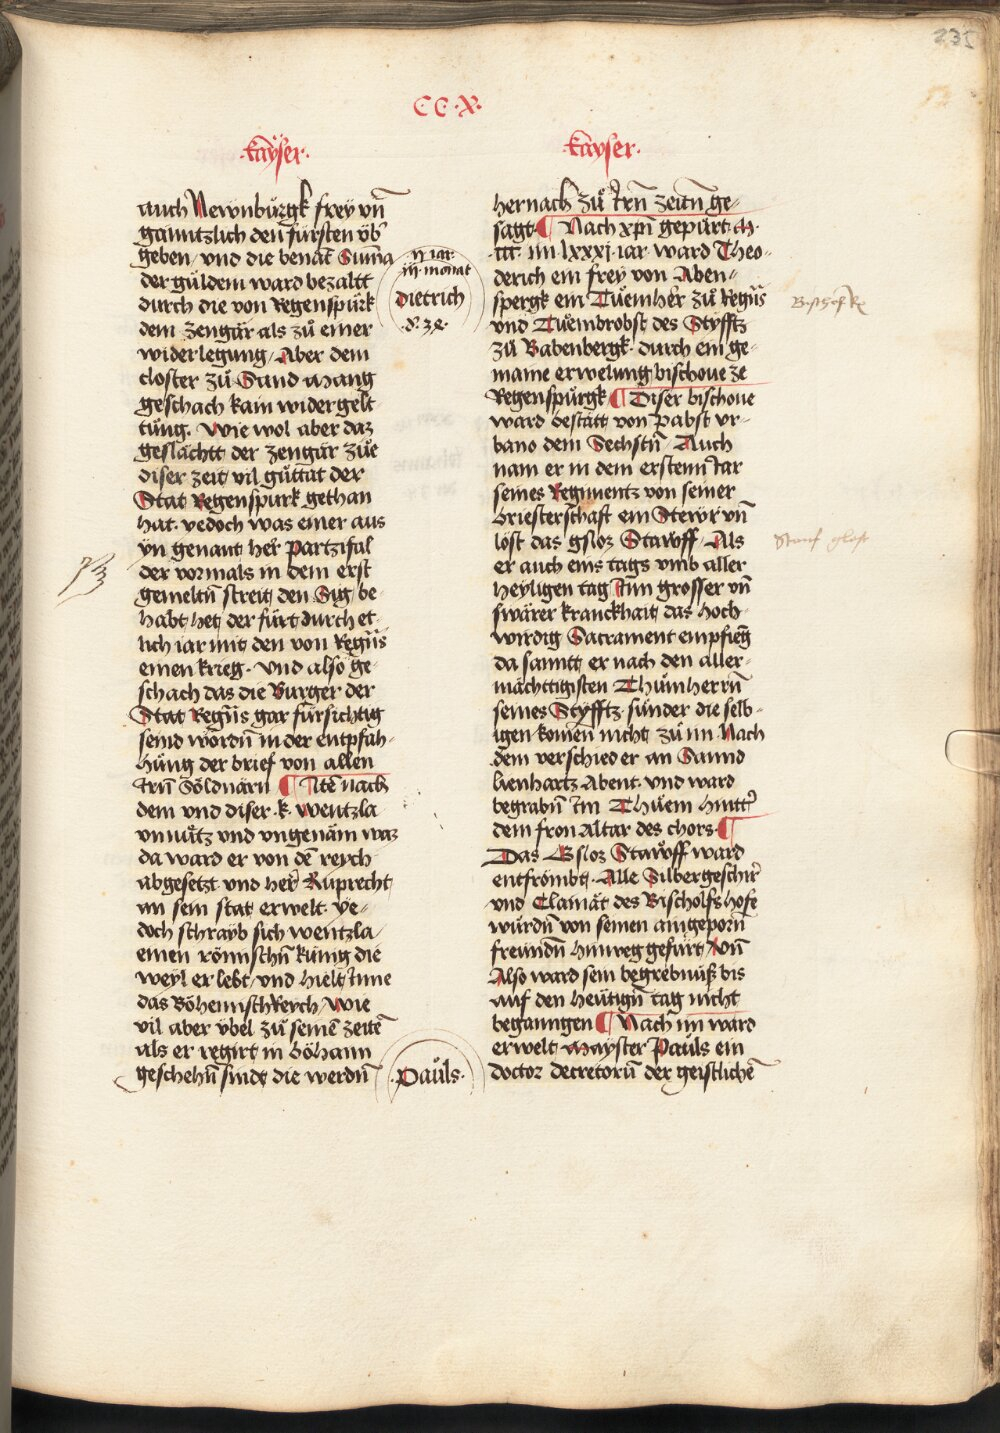 235
·C·C·X·
·kaÿser·
auch Newnbürgk freÿ vn̄
ganntzlich den fürsten vb̄
geben / vnd die benāt Sum̄a
der guldem ward bezaltt
durch die von Regenspürk
dem Zengär als zů einer
widerlegung / Aber dem
closter zů Sand Mang
geschach kain widergelt
tüng. Wie wol aber daz
geslächtt der Zengär zůe
diser zeit vil güttat der
Stat Regenspurk gethan
hat. yedoch was einer aus
yn genant her Partzifal
der vormals in dem erst
gemeltn̄ streit den Sig be-
habt het der fürt durch et-
lich iar mit den von Regn̄s
einen krieg. vnd also ge-
schach das die Burger der
Stat Regn̄s gar fürsichtig
seind wordn̄ in der entpfah-
hüng der brief von allen
irn̄ Söldnärn ¶ Itē nach
dem vnd diser ·k· wentzla
vnnütz vnd vngenäm waz
da ward er von dē reych
abgesetzt vnd her Ruprecht
an sein stat erwelt. ye-
doch schrayb sich wentzla
einen römischn̄ künig die
weyl er lebt / vnd hielt inne
das Böhemisch Reych / Wie
vil aber vbel zů seinē zeitē
als er regirt in böhann
geschehn̄ sindt die werdn̄
ij iar
iij monat
Dietrich
·Pauls·
·kayser·
hernach zů irn̄ zeitn̄ ge-
sagt ¶ Nach xp̄i gepürt ·M·
·iijc· im lxxxj iar ward Theo-
derich ein frey von Aben-
spergk ein Tůemher zů Regn̄s
vnd Tůembrobst des Styfftz
zů Babenbergk · durch ein ge-
maine erwelung bischoue ze
Regenspürgk ¶ Diser bischoue
ward bestätt von Pabst vr-
bano dem Sechstn̄ / Auch
nam er in dem erstenn Jar
seines Regiments von seiner
briesterschaft ein Stewr vn̄
löst das gsloz Stawff / Als
er auch eins tags vmb aller
heyligen tag Inn grosser vn̄
swärer kranckhait das hoch-
wirdig Sacrament empfieng
da sanntt er nach den aller-
mächttigisten Thůmherrn̄
seines Styfftz sünder die selb-
igen komen nicht zů im Nach
dem verschied er an Sannd
lienhartz Abent. vnd ward
begrabn̄ im Thůem hintt̄
dem fron Altar des chors ¶
Das Gsloz Stawff ward
entfrömbt. Alle Silbergeschir̄
vnd Clainät des Bischolfs hofe
würdn̄ von seinen aingeporn̄
freundn̄ hinweg gefürt / Vn̄
Also ward sein begrebnüß bis
auf den heütign̄ tag nicht
beganngen ¶ Nach im ward
erwelt Mayster Pauls ein
doctor decretorū der geistlichē